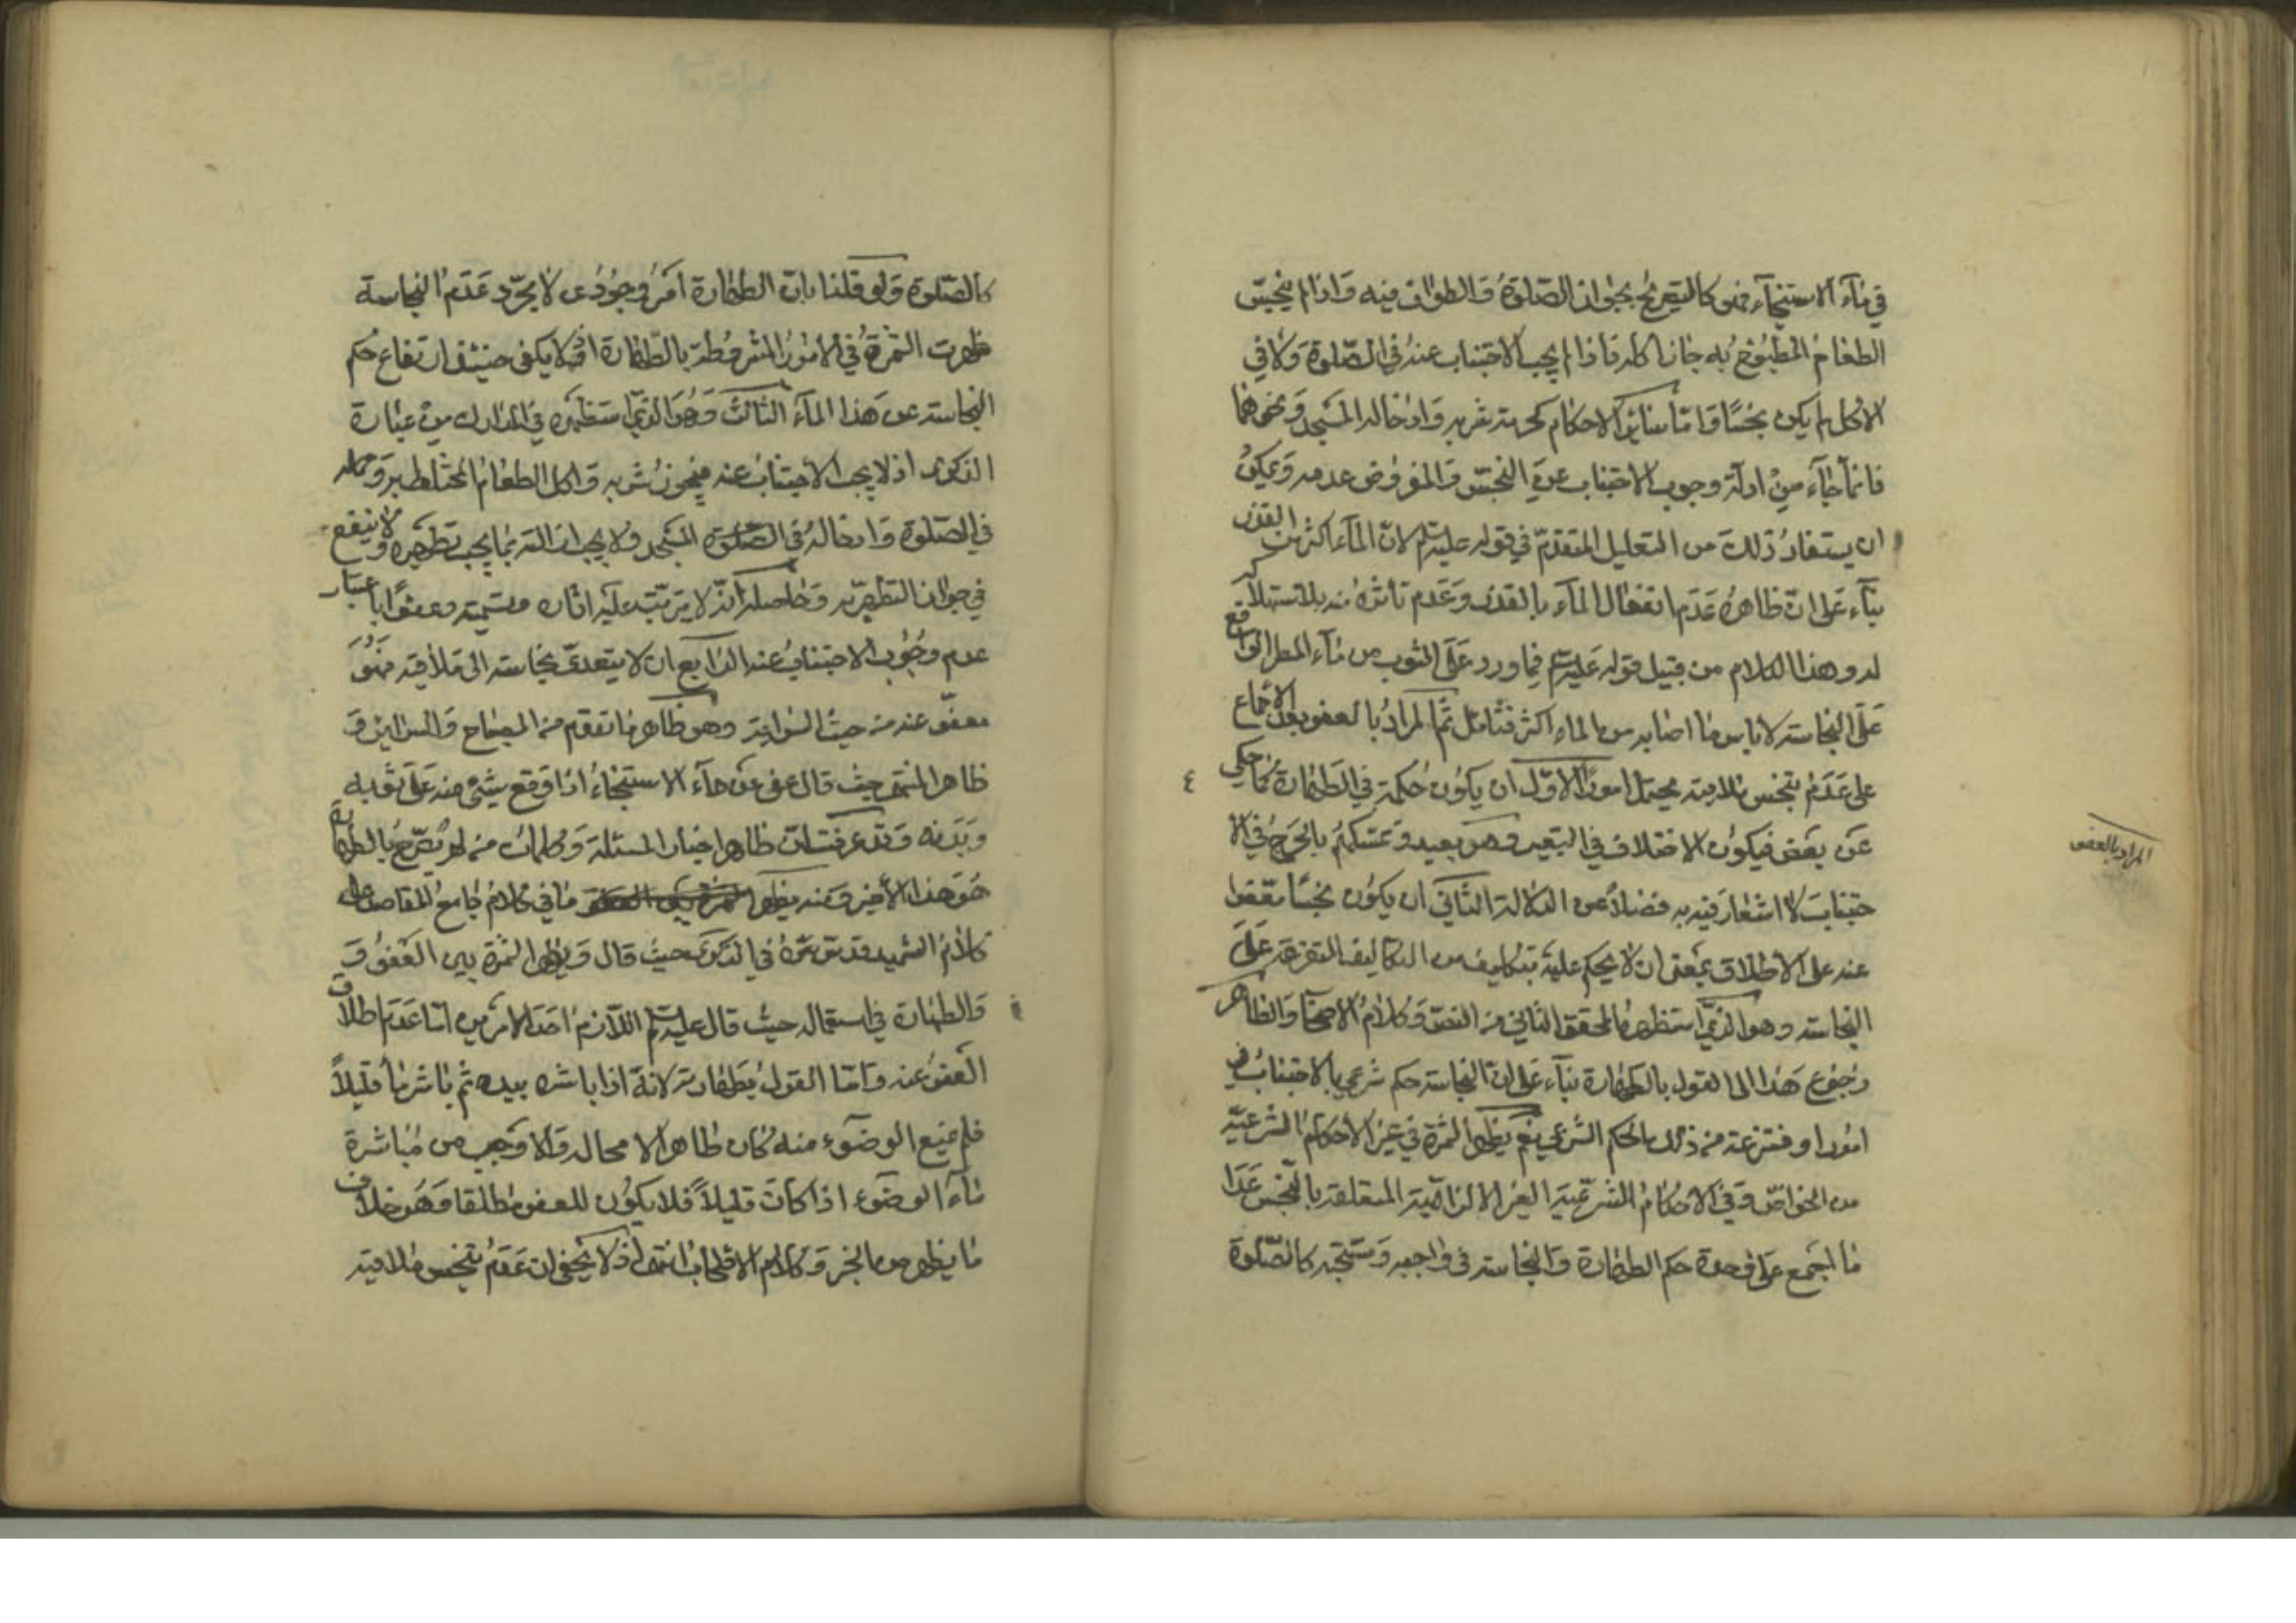 في ماء الاستنجاء فهو كالتصريح بجواز الصلوة والطواف فيه واذا لم ينجس
الطعام المطبوخ به جاز اكله فاذا لم يجب الاجتناب عنه في الصلوة ولا في
الاكل لم يكن نجسا واما سائر الاحكام كحرمة شربه وادخاله المسجد ونحوهما
فانما جاء من ادلة وجوب الاجتناب عن النجس والمفروض عدمه ويمكن
ان يستفاد ذلك من التعليل المتقدم في قوله عليه السلم لان الماء اكثر من القذر
بناء على ان ظاهره عدم انفعال الماء بالقذر وعدم تاثره منه بلاستهلاكه
له وهذا الكلام من قبيل قوله عليه السلم فيما ورد على الثوب من ماء المطر الواقع
على النجاسة لا باس ما اصابه من الماء اكثر فتامل ثم المراد بالعفو بعد الاجماع
على عدم تنجس ملاقيه يحتمل امورا الاول ان يكون حكمه في الطهارة كما حكي
عن بعض فيكون الاختلاف في التعبير وهو بعيد وتمسكهم بالحرج في الا
جتناب لا اشعار فيه به فضلا عن الدلالة الثاني ان يكون نجسا معفوا
عنه على الاطلاق بمعنى ان لا يحكم عليه بتكليف من التكاليف المتفرعة على
النجاسة وهو الذي استظهره المحقق الثاني من النص وكلام الاصحاب والظاهر
رجوع هذا الى القول بالطهارة بناء على ان النجاسة حكم شرعي بالاجتناب في
امور او منتزعة من ذلك الحكم الشرعي نعم يظهر الثمرة في غير الاحكام الشرعية
من الخواص وفي الاحكام الشرعية الغير الالزامية المتعلقة بالنجس عدا
ما اجمع على وحدة حكم الطهارة والنجاسة في واجبه ومستحبه كالصلوة
المراد بالعفو
٤
كالصلوة ولو قلنا بان الطهارة امر وجودي لا مجرد عدم النجاسة
ظهرت الثمرة في الامور المشروطة بالطهارة اذ لا يكفى حينئذ ارتفاع حكم
النجاسة عن هذا الماء الثالث وهو الذي استظهره في المدارك من عبارة
الذكرى اذ لا يجب الاجتناب عنه فيجوز شربه واكل الطعام المختلط به وحمله
في الصلوة وادخاله في الصلوة المسجد ولا يجب ازالته بما يجب تطهيره ولا ينفع
في جواز التطهر به وحاصله انه لا يترتب عليه اثاره وتسميته معفوا باعتبار
عدم وجوب الاجتناب عنه الرابع ان لا يتعدى نجاسته الى ملاقيه فهو
معفو عنه من حيث السراية وهو ظاهر ما تقدم من المصباح والسرائر و
ظاهر المنتهى حيث قال عفى عن ماء الاستنجاء اذا وقع شيئ منه على ثوبه
وبدنه وقد عرفت ان ظاهر اخبار المسئلة وكلمات من لم يصرح بالطهارة
هو هذا الاخير ومنه يظهر ما في كلام جامع المقاصد
كلام الشهيد قدس سره في الذكرى حيث قال ويظهر الثمرة بين العفو و
والطهارة في استعماله حيث قال عليه السلم اللازم احد الامرين اما عدم اطلاق
العفو عنه واما القول بطهارته لانه اذا باشره بيده ثم باشر ماء قليلا
فلم يمنع الوضوء منه كان طاهرا لا محالة والا وجب من مباشرة
ماء الوضوء اذا كان قليلا فلا يكون للعفو مطلقا وهو خلاف
ما يظهر من الخبر وكلام الاصحاب انتهى اذ لا يخفى ان عدم تنجس ملاقيه